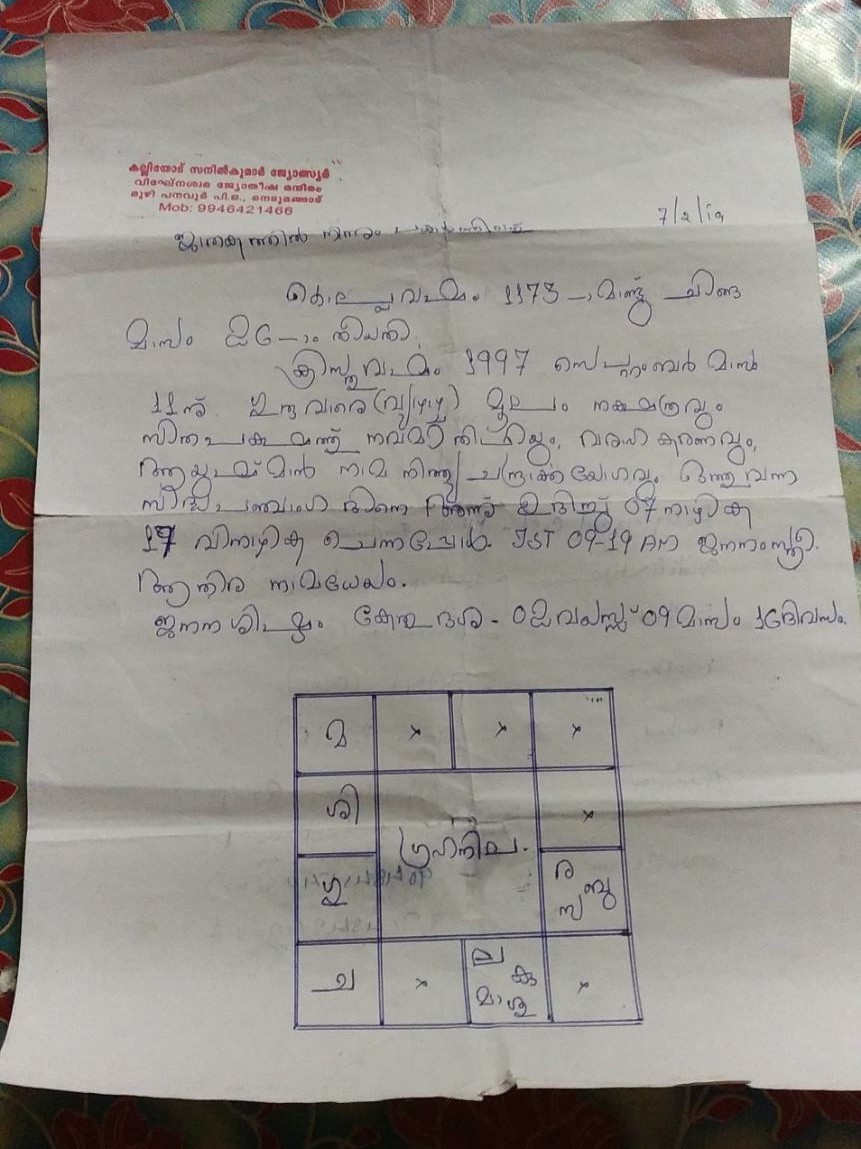 കല്ലിയോട് സനിൽകുമാർ ജ്യോത്സ്യർ
വിഘ്നേശ്വര ജ്യോതിഷ മന്ദിരം
മുഴി പനവൂർ പി.ഒ., നെടുമങ്ങാട്
Mob: 9946421466
7/2/19
ജാതകത്തിൽ നിന്നും
കൊല്ലവർഷം 1173 -ാമാണ്ടു ചിങ്ങ
മാസം 26-ാം തീയതി,
ക്രിസ്തുവർഷം 1997 സെപ്റ്റംബർ മാസം
11നു് ഗുരുവാരെ (വ്യാഴം) മൂലം നക്ഷത്രവും
സിതപക്ഷത്ത് നവമീ തിഥിയും, വരാഹ കരണവും,
ആയുഷ്മാൻ നാമ നിത്യ യോഗവും ഒത്തുവന്ന
ദിനെ ഉദിച്ച് 07 നാഴിക
17 വിനാഴിക ചെന്നപ്പോൾ IST 09-19 AM ജനനം സ്ത്രീ.
ആതിര നാമധേയം.
ജനന ശിഷ്ടം കേതു ദശ - 02 വയസ്സ് 09 മാസം 16 ദിവസം.
മ × × ×
ശി ×
ഗ്രഹനില.
ഗു ര ബു സ
ച × ല കു മാ ശു ×